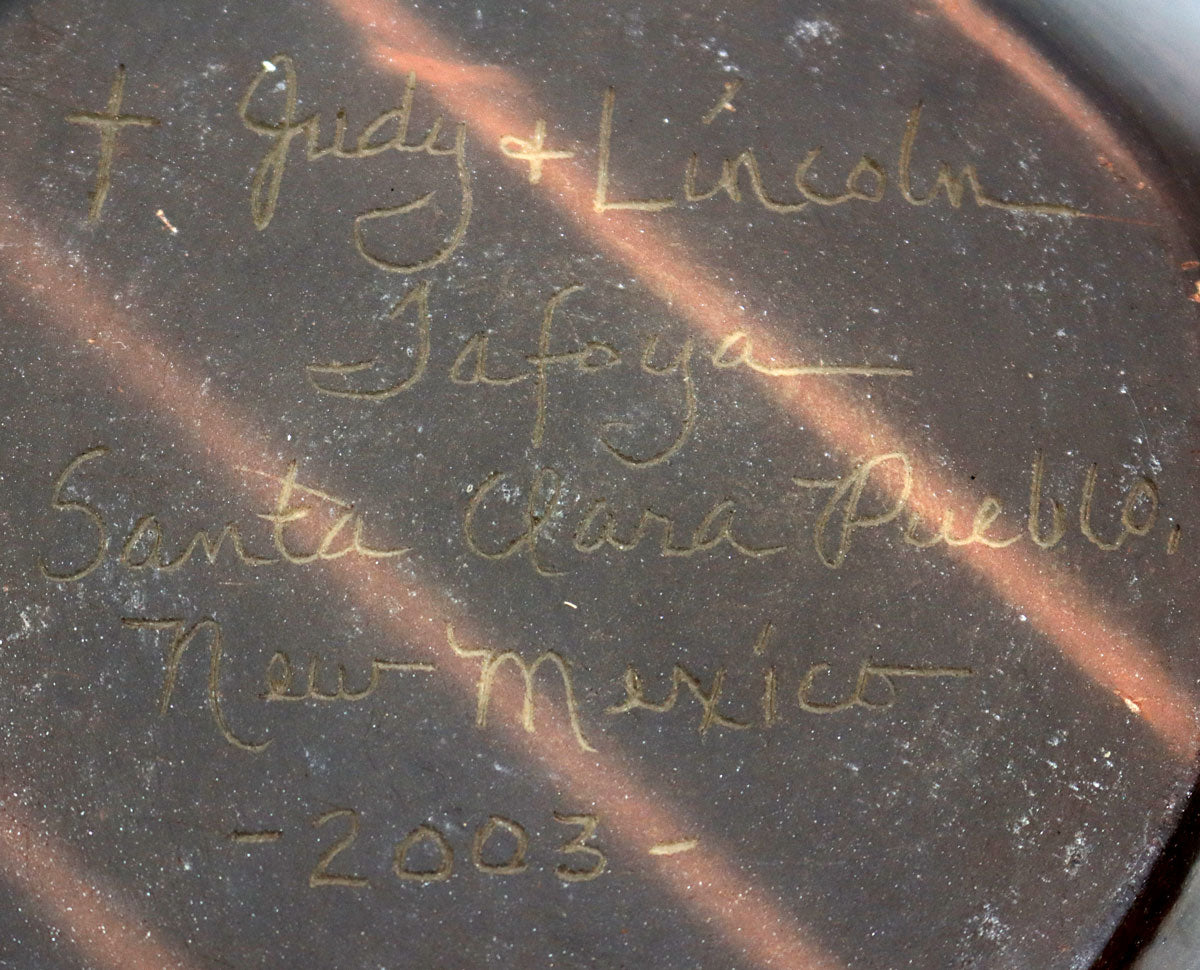 † Judy & Lincoln
Tafoya
Santa Clara Pueblo,
New Mexico
- 2003 -